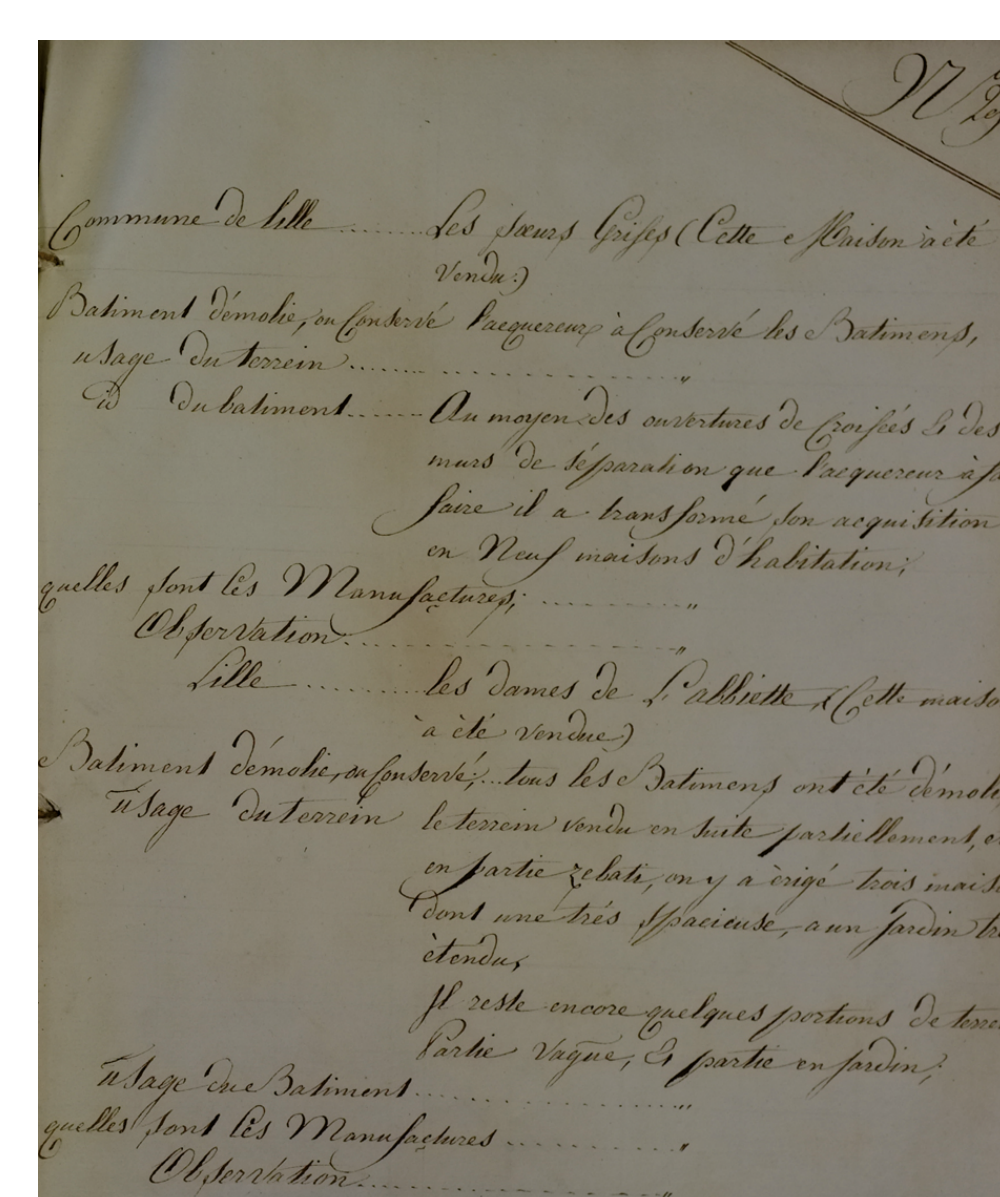 N
Commune de lille ........ Les sœurs Grises (Cette Maison à été
Vendu:)
Batiment démolie, ou Conservé l'acquereur à Conservé les Batimens,
usage du terrein ........ "
id du batiment ........ Au moyen des ouvertures de Croisées & des
murs de séparation que l'acquereur à fa
faire il a transformé son acquisition
en Neuf maisons d'habitation;
quelles sont les Manufactures; ........ "
Observation ........ "
Lille ........ les dames de L'abbiette, (Cette maiso
à été vendue)
Batiment démolie, ou Conservé; ... tous les Batimens ont été démoli
usage du terrein le terrein vendu en suite partiellement, e
en partie rebati, on y a èrigé trois mais
dont une trés spacieuse, a un jardin tr
ètendu,
Il reste encore quelques portions de terre
Partie vague, & partie en jardin;
usage du Batiment ........ "
quelles sont les Manufactures ........ "
Observation ........ "